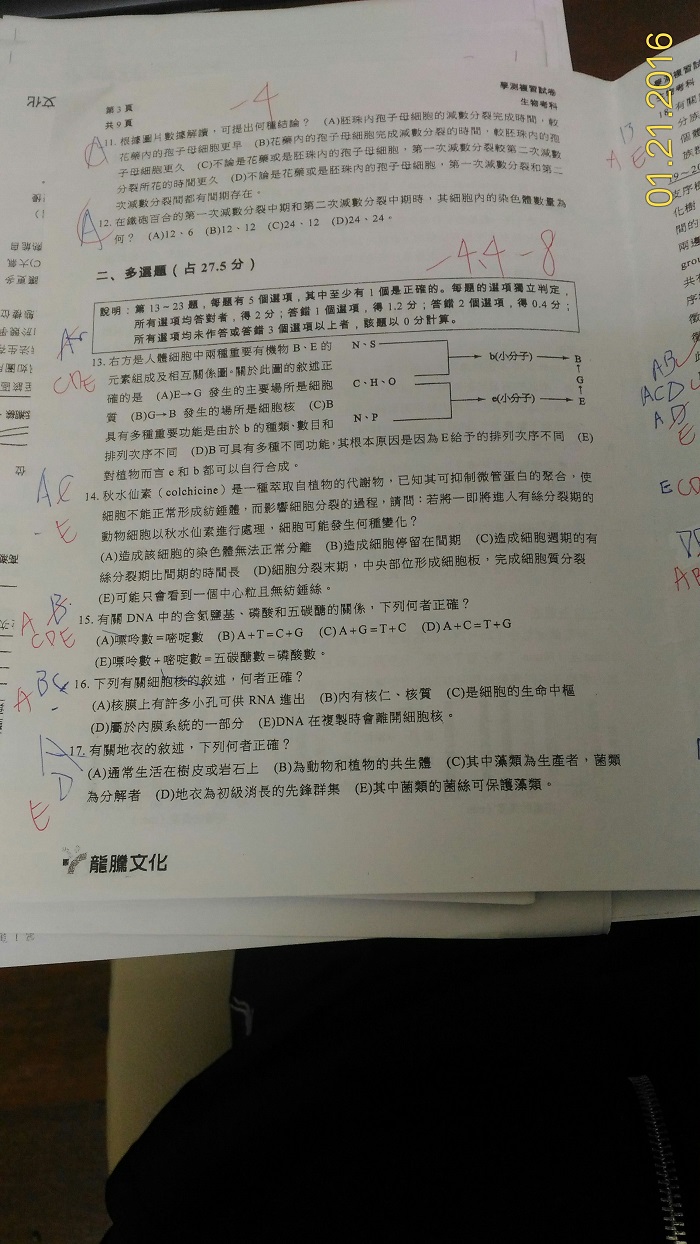 01.21.2016
第3頁
共9頁
學測複習試卷
生物考科
-4
11. 根據圖片數據解讀，可提出何種結論？ (A)胚珠內孢子母細胞的減數分裂完成時間，較
花藥內的孢子母細胞更早 (B)花藥內的孢子母細胞完成減數分裂的時間，較胚珠內的孢
子母細胞更久 (C)不論是花藥或是胚珠內的孢子母細胞，第一次減數分裂較第二次減數
分裂所花的時間更久 (D)不論是花藥或是胚珠內的孢子母細胞，第一次減數分裂和第二
次減數分裂間都有間期存在。
A
12. 在鐵砲百合的第一次減數分裂中期和第二次減數分裂中期時，其細胞內的染色體數量為
何？ (A)12、6 (B)12、12 (C)24、12 (D)24、24。
A
二、多選題（占 27.5 分）
-4.4 -8
說明：第 13～23 題，每題有 5 個選項，其中至少有 1 個是正確的。每題的選項獨立判定，
所有選項均答對者，得 2 分；答錯 1 個選項，得 1.2 分；答錯 2 個選項，得 0.4 分；
所有選項均未作答或答錯 3 個選項以上者，該題以 0 分計算。
13. 右方是人體細胞中兩種重要有機物 B、E 的
元素組成及相互關係圖。關於此圖的敘述正
確的是 (A)E→G 發生的主要場所是細胞
質 (B)G→B 發生的場所是細胞核 (C)B
具有多種重要功能是由於 b 的種類、數目和
排列次序不同 (D)B 可具有多種不同功能，其根本原因是因為 E 給予的排列次序不同 (E)
對植物而言 e 和 b 都可以自行合成。
N、S
C、H、O
N、P
b(小分子)
e(小分子)
B
G
E
CDE
14. 秋水仙素（colchicine）是一種萃取自植物的代謝物，已知其可抑制微管蛋白的聚合，使
細胞不能正常形成紡錘體，而影響細胞分裂的過程，請問：若將一即將進入有絲分裂期的
動物細胞以秋水仙素進行處理，細胞可能發生何種變化？
(A)造成該細胞的染色體無法正常分離 (B)造成細胞停留在間期 (C)造成細胞週期的有
絲分裂期比間期的時間長 (D)細胞分裂末期，中央部位形成細胞板，完成細胞質分裂
(E)可能只會看到一個中心粒且無紡錘絲。
AC
- E
15. 有關 DNA 中的含氮鹽基、磷酸和五碳醣的關係，下列何者正確？
(A)嘌呤數＝嘧啶數 (B)A＋T＝C＋G (C)A＋G＝T＋C (D)A＋C＝T＋G
(E)嘌呤數＋嘧啶數＝五碳醣數＝磷酸數。
A B
CDE
16. 下列有關細胞核的敘述，何者正確？
(A)核膜上有許多小孔可供 RNA 進出 (B)內有核仁、核質 (C)是細胞的生命中樞
(D)屬於內膜系統的一部分 (E)DNA 在複製時會離開細胞核。
A BC
17. 有關地衣的敘述，下列何者正確？
(A)通常生活在樹皮或岩石上 (B)為動物和植物的共生體 (C)其中藻類為生產者，菌類
為分解者 (D)地衣為初級消長的先鋒群集 (E)其中菌類的菌絲可保護藻類。
A
D
E
龍騰文化